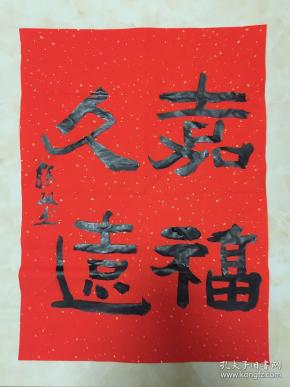 嘉福
久遠
孔夫子旧书网